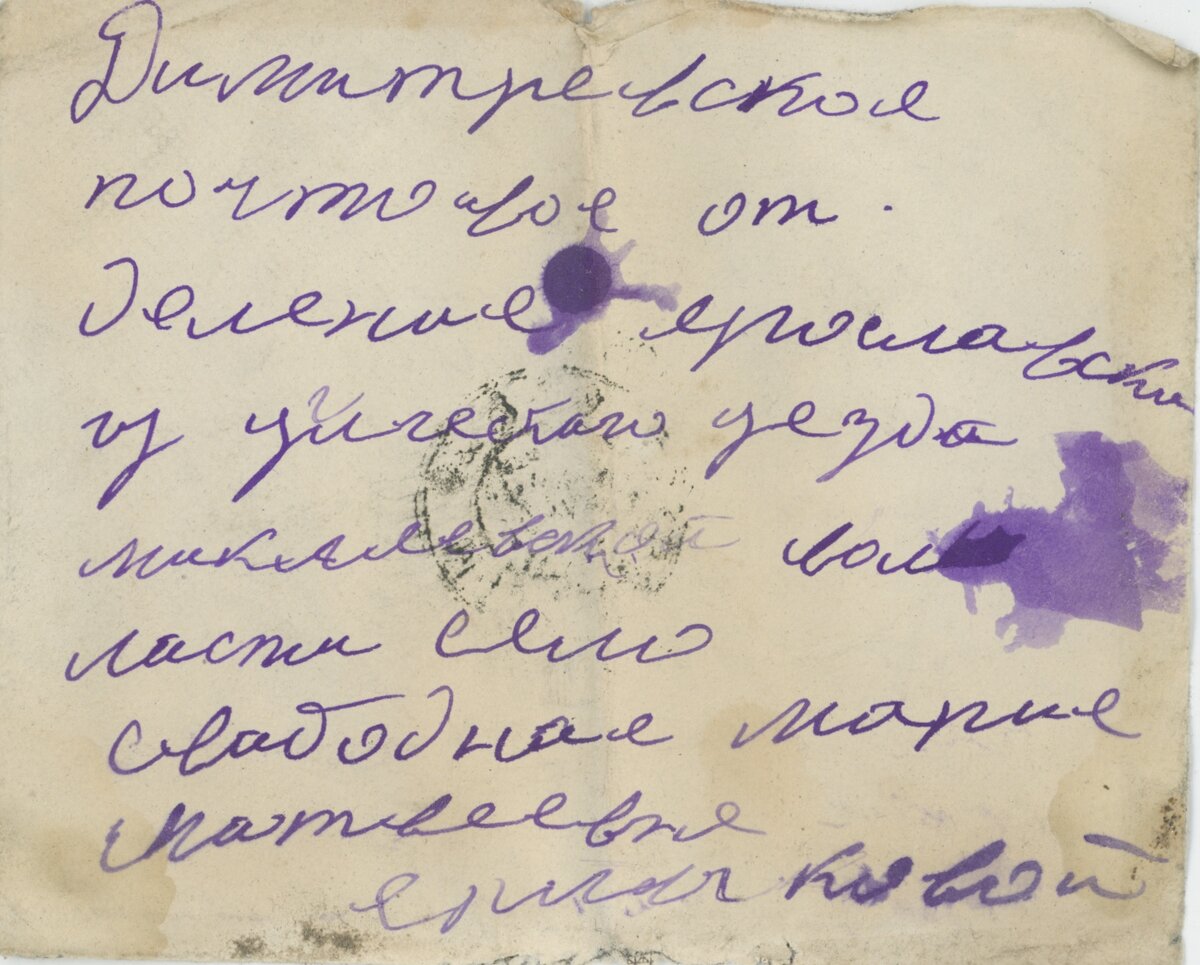 Димитревскоя
почтовое от
деление ярославски
гу углическаго уезда
микляевской вол
ласти село
свабодная марие
матвеевне
ермачковой